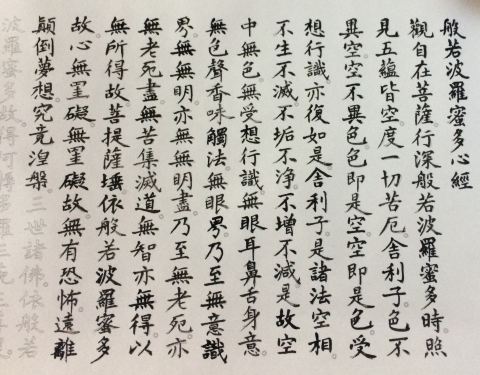 般若波羅蜜多心經
觀自在菩薩。行深般若波羅蜜多時。照
見五蘊皆空。度一切苦厄。舍利子。色不
異空。空不異色。色即是空。空即是色。受
想行識。亦復如是。舍利子。是諸法空相。
不生不滅。不垢不淨。不增不減。是故空
中無色。無受想行識。無眼耳鼻舌身意。
無色聲香味觸法。無眼界。乃至無意識
界。無無明。亦無無明盡。乃至無老死。亦
無老死盡。無苦集滅道。無智亦無得。以
無所得故。菩提薩埵。依般若波羅蜜多
故。心無罣礙。無罣礙故。無有恐怖。遠離
顛倒夢想。究竟涅槃。三世諸佛。依般若
波羅蜜多故。得阿耨多羅三藐三菩提。